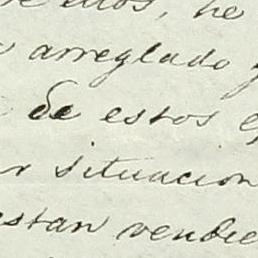 ellos, he
arreglado
de estos
situacion
estan vendie